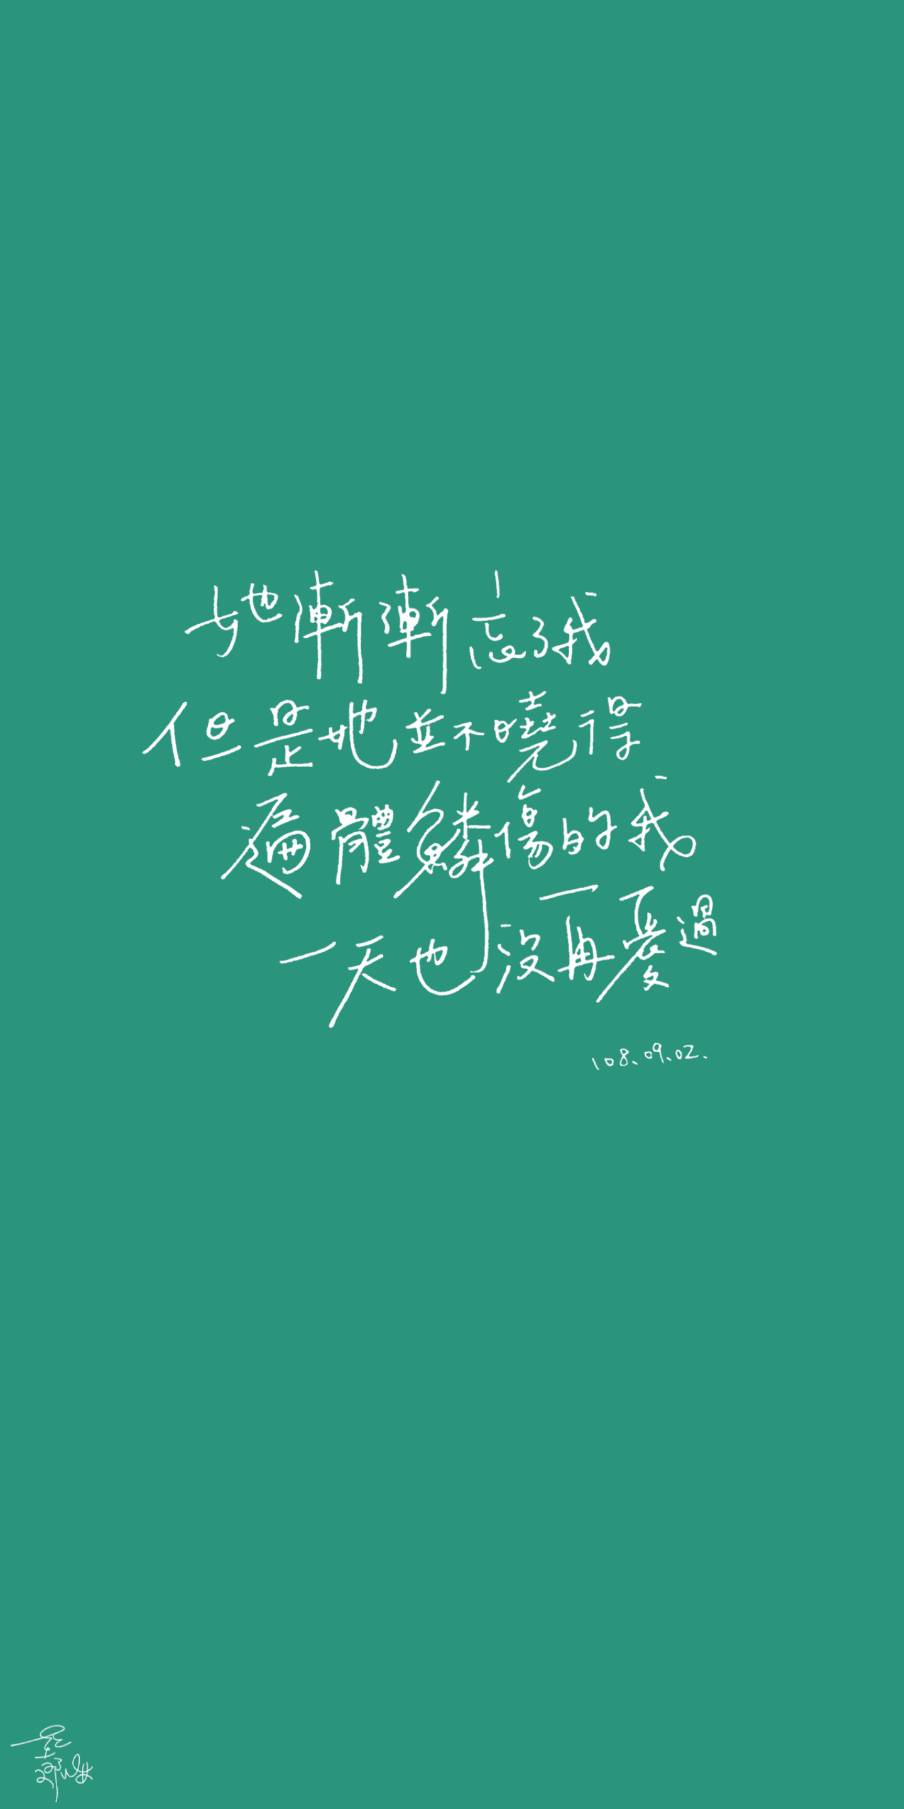 她漸漸忘了我
但是她並不曉得
遍體鱗傷的我
一天也沒再愛過
108.09.02.